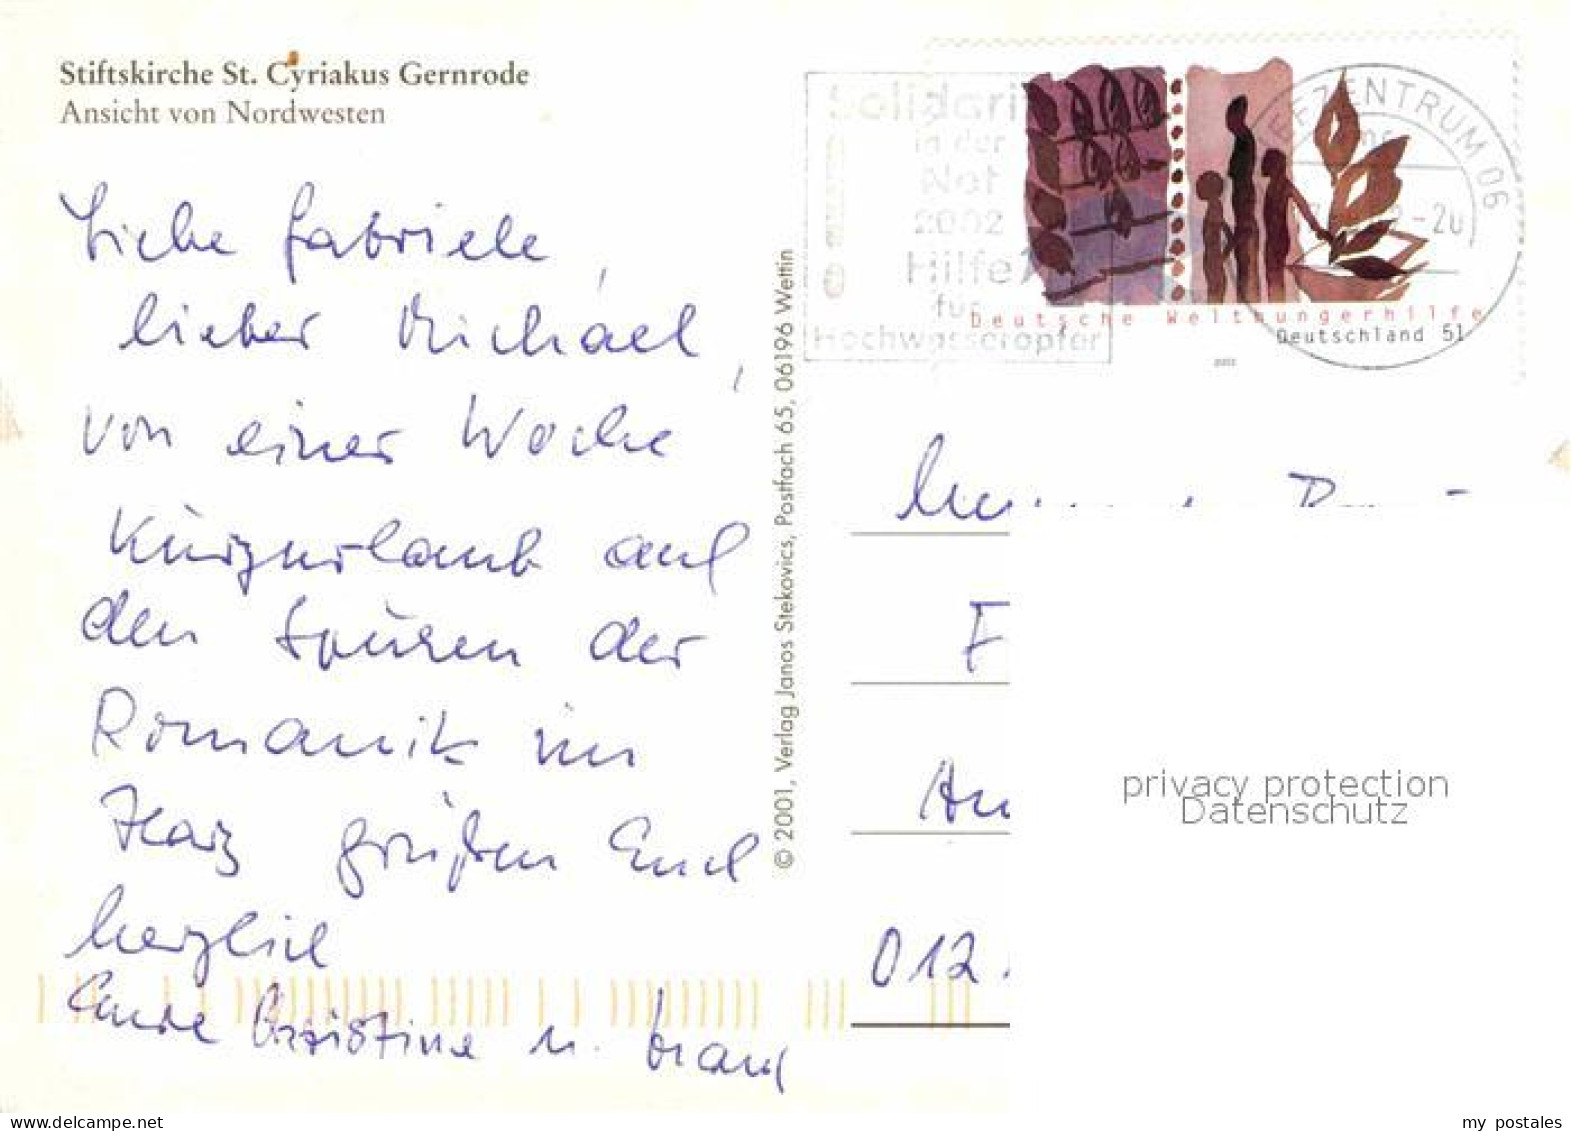 Stiftskirche St. Cyriakus Gernrode
Ansicht von Nordwesten
Liebe Gabriele,
lieber Michael,
von einer Woche
Kurzurlaub auf
den Spuren der
Romanik im
Harz grüßen Euch
herzlich
Eure Christine u. Frank
© 2001, Verlag Janos Stekovics, Postfach 65, 06196 Wettin
Solidari
in der
Not
2002
Hilfe
für
Hochwasseropfer
Deutsche Welthungerhilfe
Deutschland 51
2002
EFZENTRUM 06
-20
F
012
privacy protection
Datenschutz
my_postales